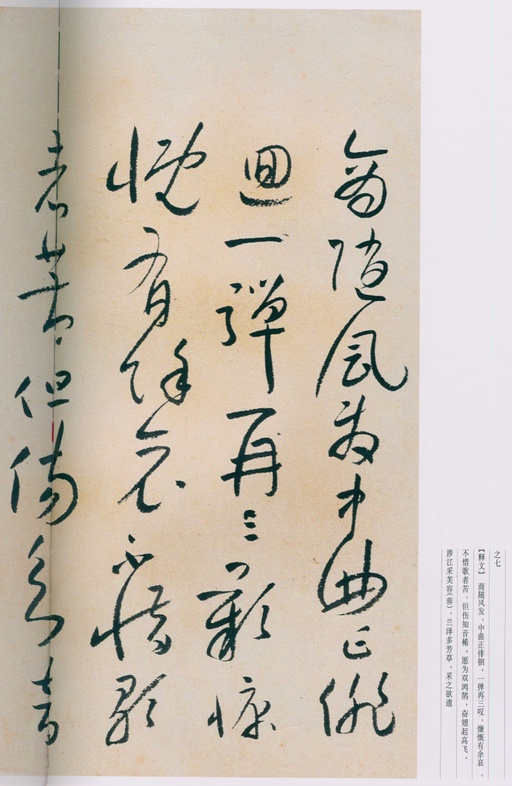 之七
【释文】 商随风发，中曲正徘徊，一弹再三叹，慷慨有余哀。
不惜歌者苦，但伤知音稀，愿为双鸿鹄，奋翅起高飞。
涉江采芙容(蓉)，兰泽多芳草。采之欲遗
商隨風發中曲正俳
迴一彈再三歎慷
慨有餘哀不惜歌
者苦但傷知音